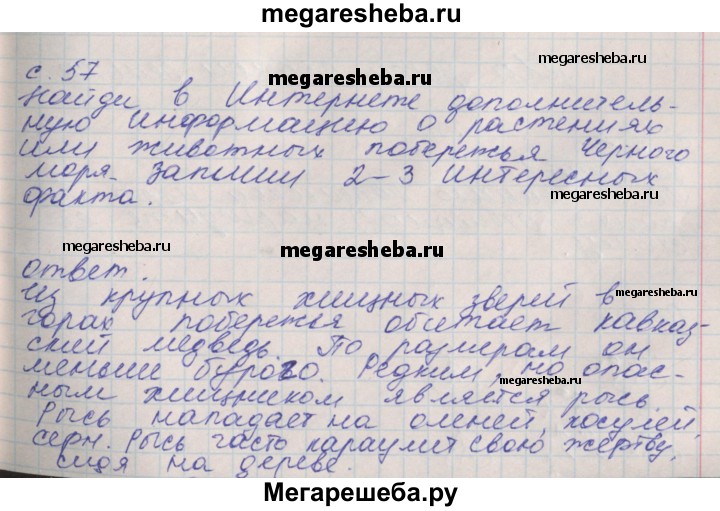 megaresheba.ru
с. 57
megaresheba.ru
megaresheba.ru
Найди в Интернете дополнитель-
ную информацию о растениях
или животных побережья Черного
моря. Запиши 2-3 интересных
факта.
megaresheba.ru
megaresheba.ru
megaresheba.ru
Ответ.
Из крупных хищных зверей в
горах побережья обитает кавказ-
ский медведь. По размерам он
меньше бурого. Редким, но опас-
megaresheba.ru
ным хищником является рысь.
Рысь нападает на оленей, косулей,
серн. Рысь часто караулит свою жертву,
сидя на дереве.
Мегарешеба.ру